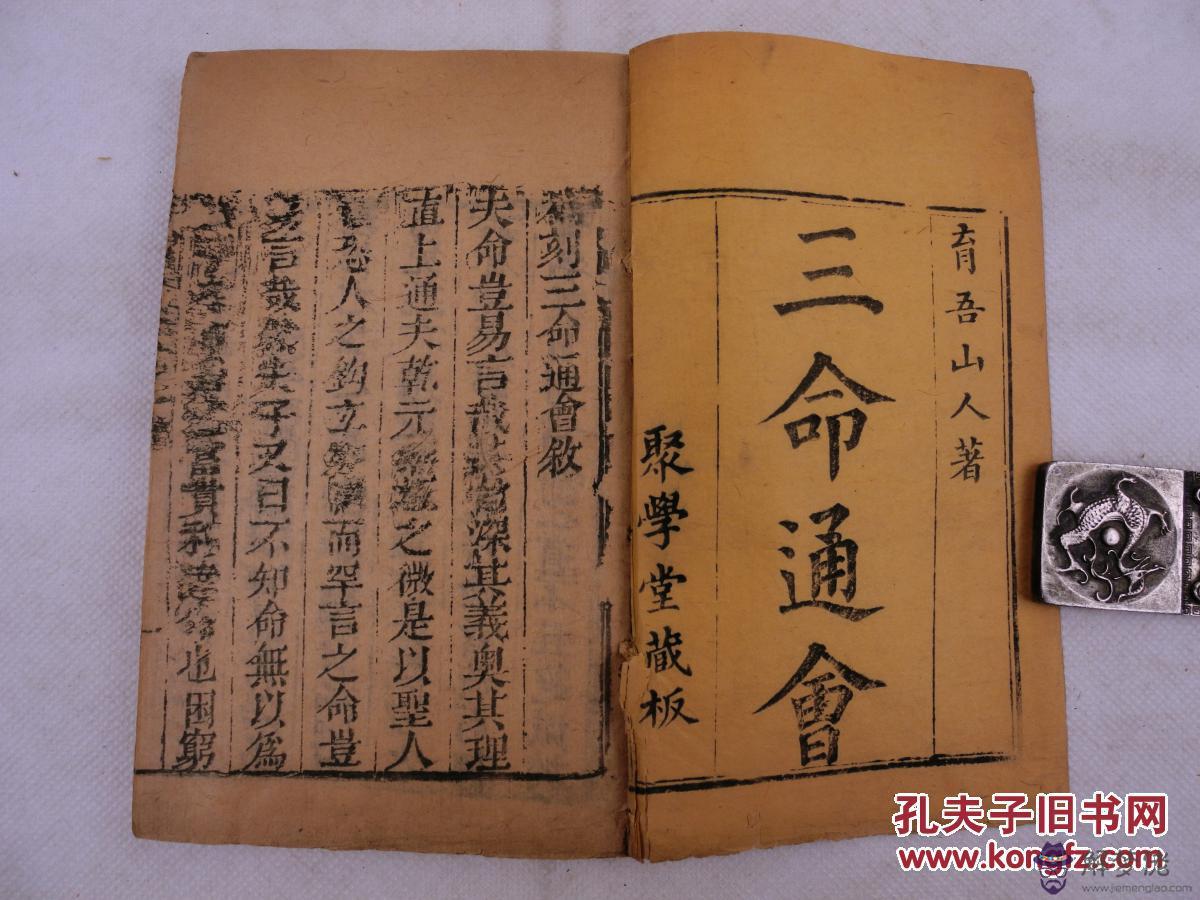 育吾山人著
三命通會
聚學堂藏板
刻三命通會敘
夫命豈易言哉深其義奥其理
直上通夫乾元之微是以聖人
恐人之鈎立而罕言之命豈
易言哉子又曰不知命無以爲
富貴也困窮
孔夫子旧书网
www.kongfz.com
解梦佬
www.jiemenglao.com